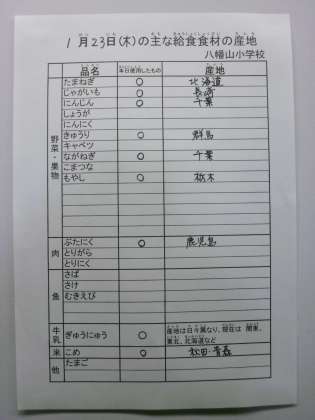 1月23日(木)の主な給食食材の産地
八幡山小学校
品名 本日使用したもの 産地
野菜・果物
たまねぎ ○ 北海道
じゃがいも ○ 長崎
にんじん ○ 千葉
しょうが
にんにく
きゅうり ○ 群馬
キャベツ
ながねぎ ○ 千葉
こまつな
もやし ○ 栃木
肉
ぶたにく ○ 鹿児島
とりがら
とりにく
魚
さば
さけ
むきえび
牛乳 ぎゅうにゅう ○ 産地は日々異なり、現在は 関東、
東北、北海道など
米 こめ ○ 秋田・青森
他 たまご